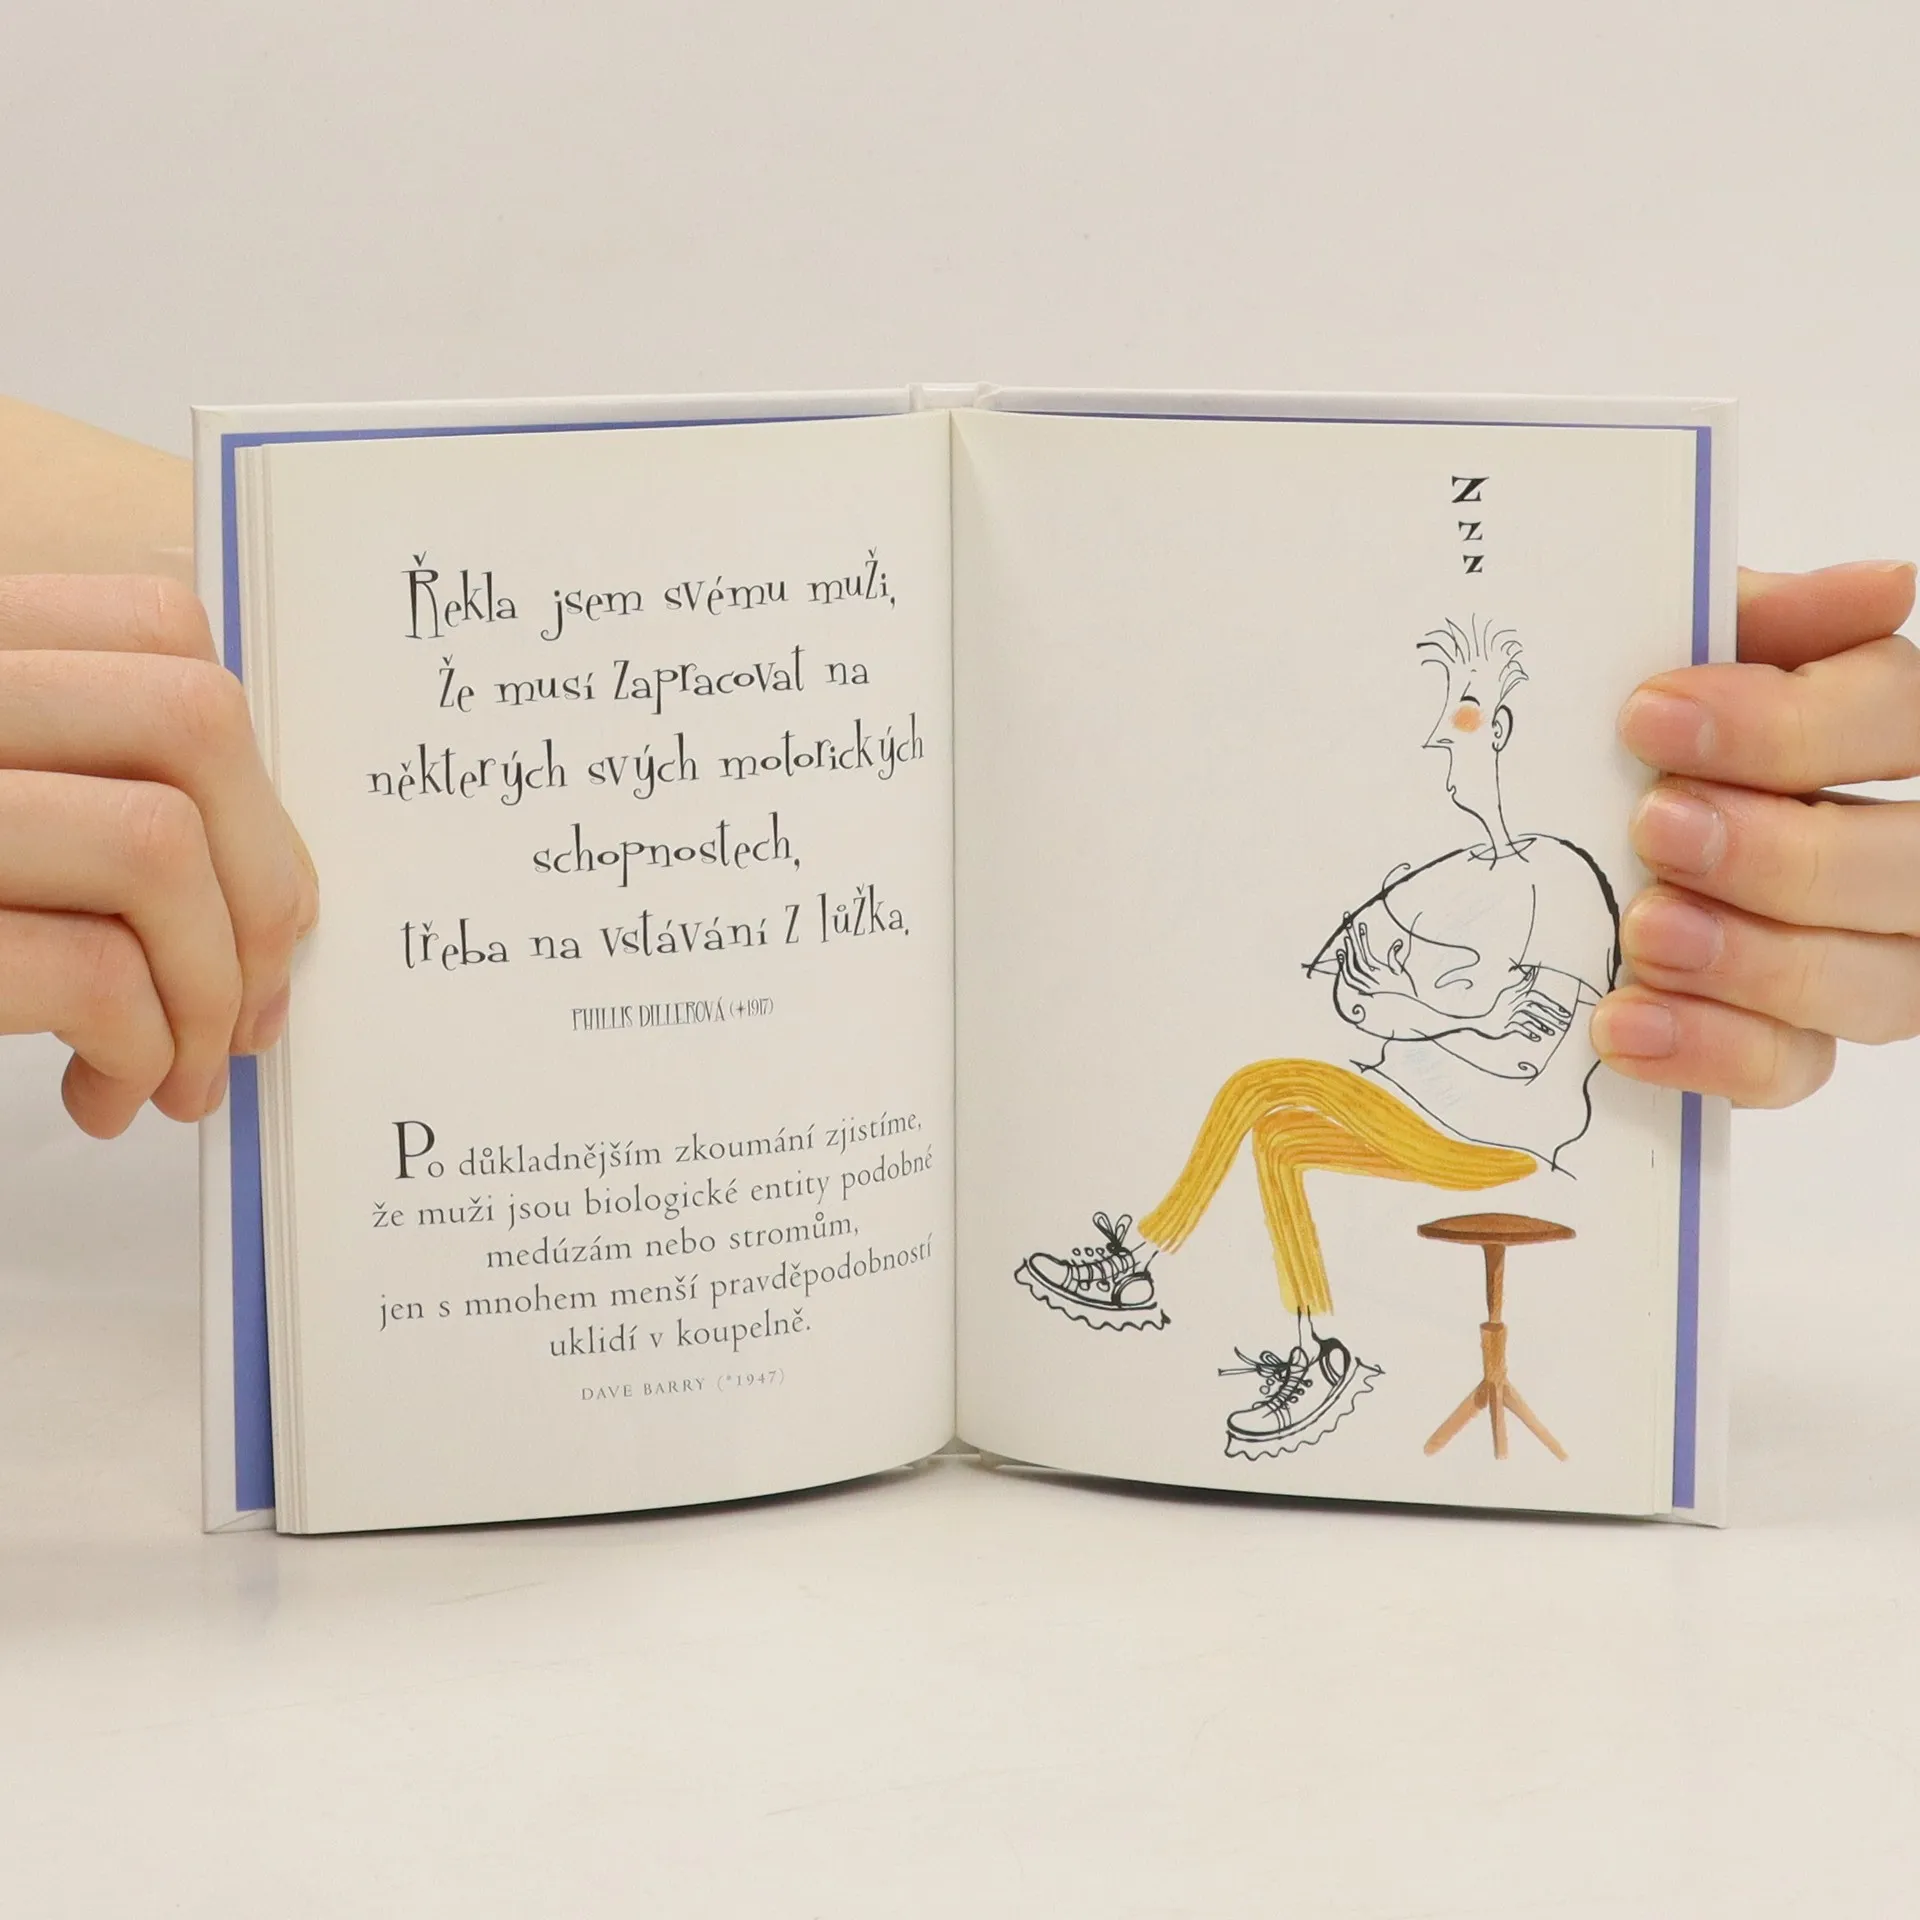 Řekla jsem svému muži,
že musí zapracovat na
některých svých motorických
schopnostech,
třeba na vstávání z lůžka.
PHILLIS DILLEROVÁ (*1917)
Po důkladnějším zkoumání zjistíme,
že muži jsou biologické entity podobné
medúzám nebo stromům,
jen s mnohem menší pravděpodobností
uklidí v koupelně.
DAVE BARRY (*1947)
Z
z
z